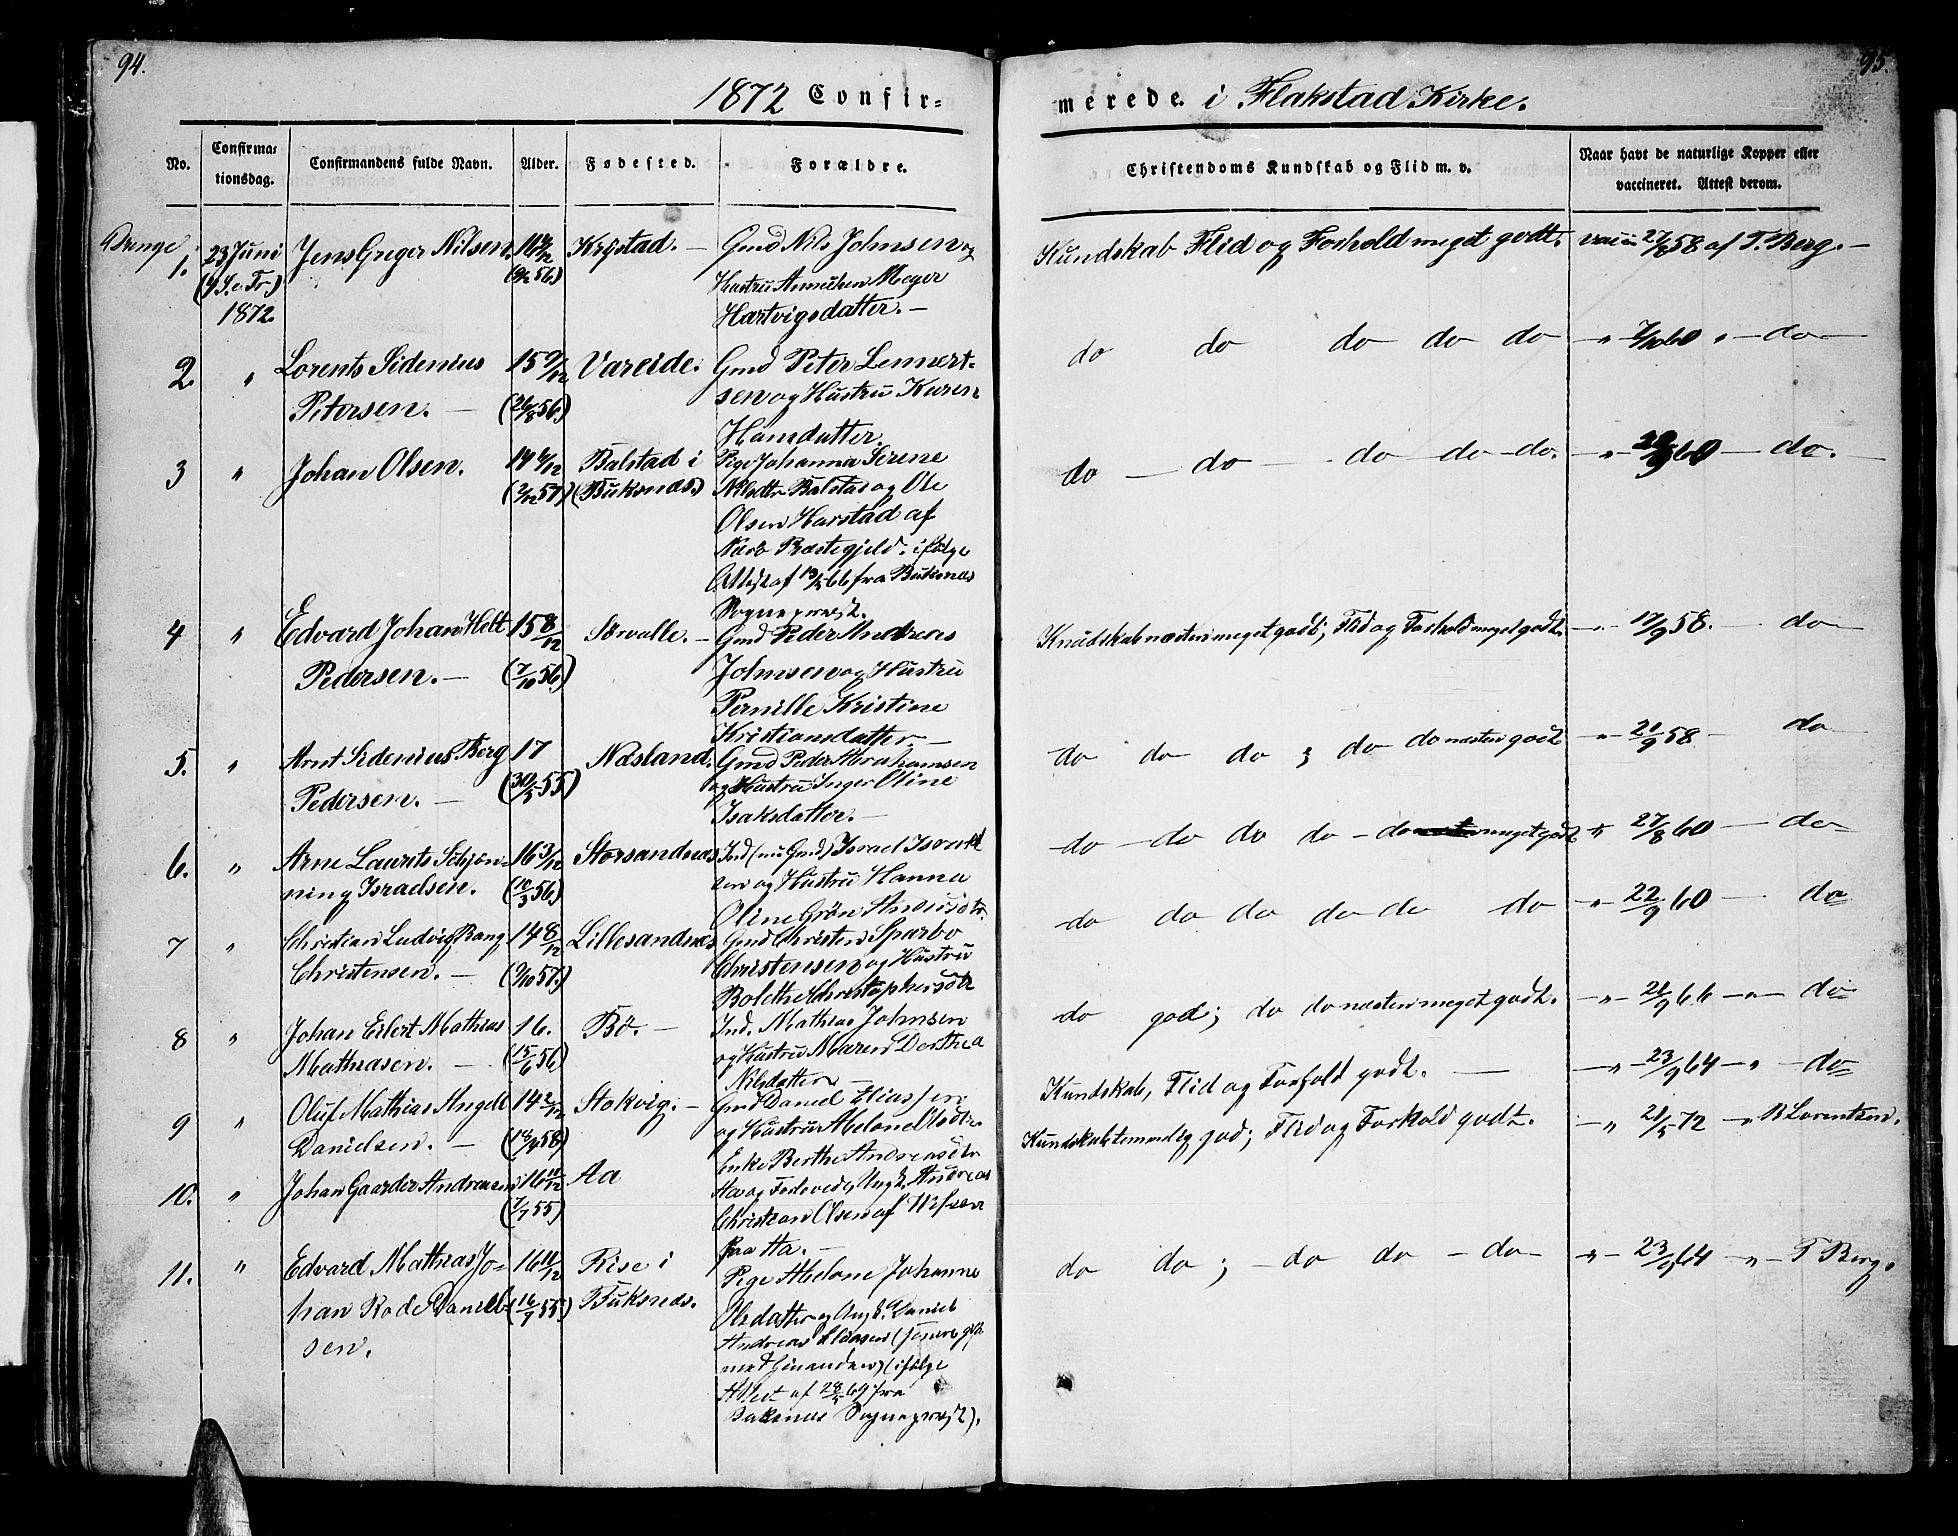 94.
1872 Confir-
No.
Confirma-
tionsdag.
Confirmandens fulde Navn.
Alder.
Fødested.
Forældre.
Drenge
1.
23 Juni
1872.
Jens Greger Nilsen.
Krystad. —
Gmd Nils Johnsen og
Hustru Anneken Meyer
Hartvigsdatter. —
2.
"
Lorents Sidenius
Petersen. —
15 9/12
(26/8 56.)
Vareide.
Gmd Peter Lennert-
sen og Hustru Karen
Hansdatter.
3
"
Johan Olsen.
14 6/12
(2/12 57)
Balstad i
(Buksnæs.)
Pige Johanna Serene
Nilsdtr Balstad og Ole
Olsen Harstad af
Præstegjeld. ifølge
Attest af 13/5 66 fra Buksnæs
Sognepræst.
4
"
Edvard Johan Helt
Pedersen. —
15 8/12
(7/10 56.)
Sørvalle. —
Gmd Peder Andreas
Johnsen og Hustru
Pernille Kristine
Kristiansdatter. —
5.
"
Arnt Sidenius Berg
Pedersen. —
17
(30/5 55)
Næsland.
Gmd Peder Abrahamsen
og Hustru Inger Oline
Isaksdatter. —
6.
"
Arne Laurits Schjøn-
ning Israelsen.
16 3/12
(10/3 56.)
Storsandnæs
Ind (nu Gmd) Israel Israel
sen og Hustru Hanna
Oline Grøn
7
"
Christian Ludvig Bang
Christensen. —
14 8/12
(9/10 57.)
Lillesandnæs
Gmd Christen Sparbo
Christensen og Hustru
Bolethe Christophersdtr
8
"
Johan Eilert Mathias
Mathiasen. —
16.
(15/6 56)
Bø. —
Ind. Mathias Johnsen
og Hustru Maren Dorthea
Nilsdatter. —
9
"
Oluf Mathias Angell
Danielsen. —
14 2/12
Stokvig. —
Gmd Daniel Eliassen
og Hustru Abelone Olsdtr.
10.
"
Johan Gaarder Andreassen
16 11/12
(7/7 55)
Aa
Enke Berthe Andreasdtr
Aa og Forlovede, Ungk. Andreas
Christian Olsen af Vefsen
fra Aa. —
11.
"
Edvard Mathias Jo-
han Rode Daniel-
sen.
16 11/12
(16/7 55.)
Rise i
Buksnæs.
Pige Abelone Johanne
Olsdatter og Ungk. Daniel
Andreas Eliassen
(ifølge
Attest af 28/5 69 fra
Buksnæs Sognepræst).
95.
merede. i Flakstad Kirke.
Christendoms Kundskab og Flid m. v.
Naar havt de naturlige Kopper eller
vaccineret. Attest derom.
Kundskab Flid og Forhold meget godt.
vacc. 27/8 58 af T. Berg. —
do do do do do
— " 7/10 60 " — do —
do — do — do do — do.
— " 28/9 60 — do. —
Kundskab næsten meget godt; Flid og Forhold meget godt.
— " 17/9 58. — do —
do do do ; do do næsten godt
— " 21/9 58 — do —
do — do do do — do meget godt
27/8 60 — do —
do do do do do do
— " 22/9 60 — do
do god; do do næsten meget godt.
— " 21/9 66 — " — do
Kundskab, Flid og Forhold godt. —
— " 23/9 64 — " — do
Kundskab temmelig god; Flid og Forhold godt.
— " 21/5 72 — " B Lorentzen.
do do ; — do do — do —
" — 23/9 64 — " — T Berg.